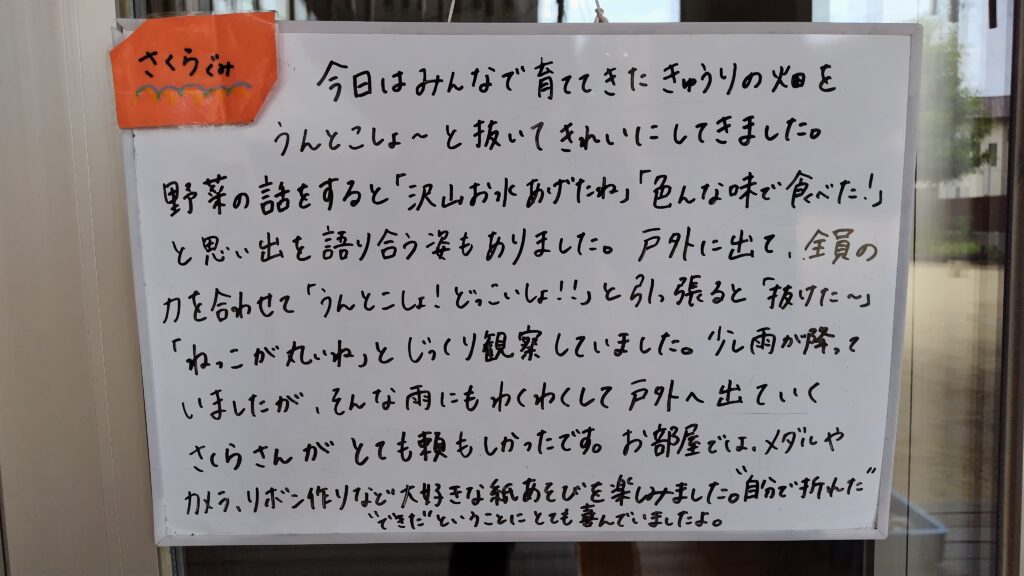 さくらぐみ
今日はみんなで育ててきたきゅうりの畑を
うんとこしょ～と抜いてきれいにしてきました。
野菜の話をすると「沢山お水あげたね」「色んな味で食べた!」
と思い出を語り合う姿もありました。戸外に出て、全員の
力を合わせて「うんとこしょ!どっこいしょ!!」と引っ張ると「抜けた～」
「ねっこが丸いね」とじっくり観察していました。少し雨が降って
いましたが、そんな雨にもわくわくして戸外へ出ていく
さくらさんがとても頼もしかったです。お部屋では、メダルや
カメラ、リボン作りなど大好きな紙あそびを楽しみました。"自分で折れた"
"できた"ということにとても喜んでいましたよ。